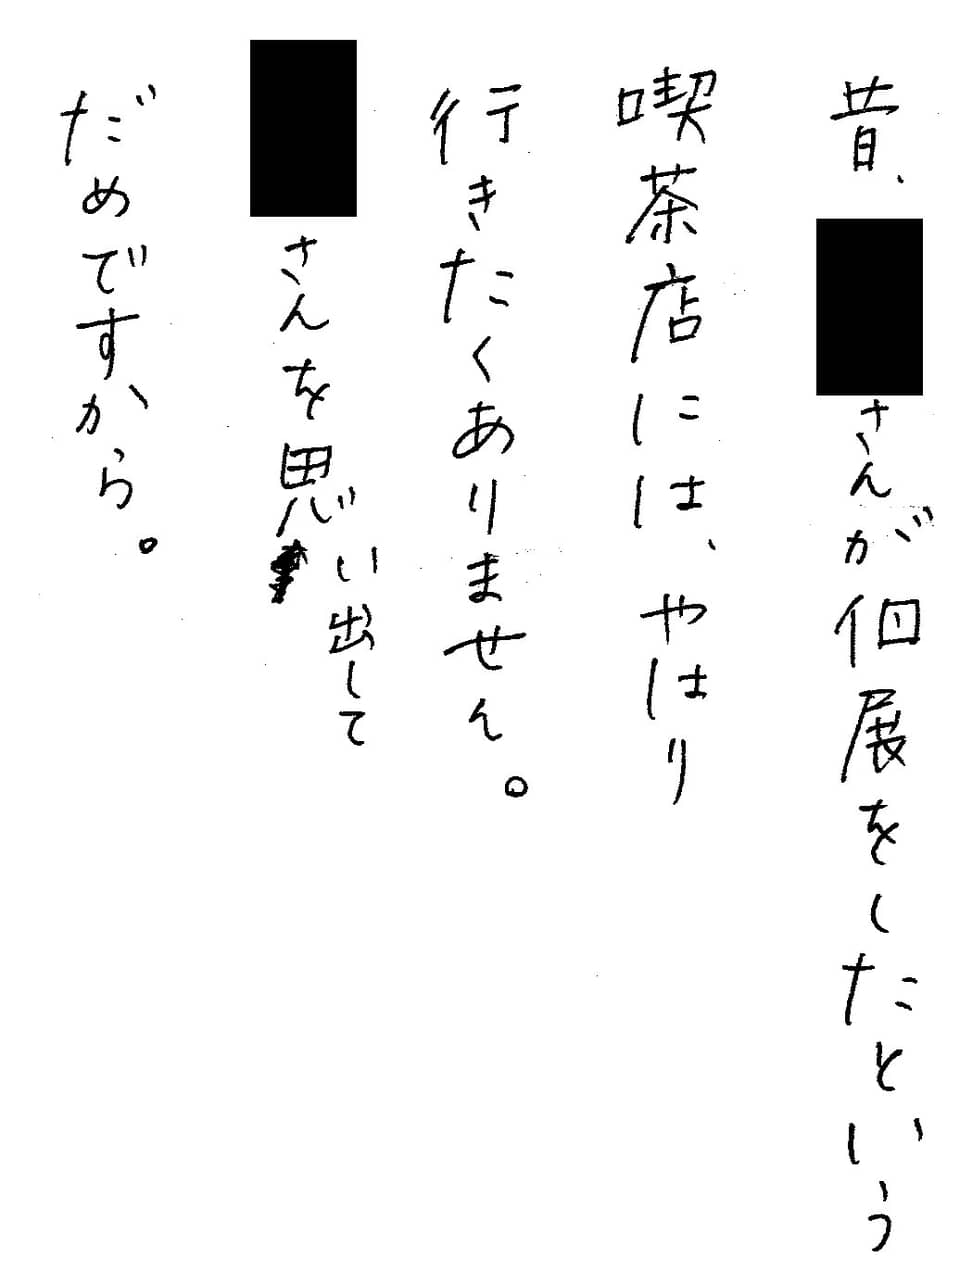 昔、
さんが個展をしたという
喫茶店には、やはり
行きたくありません。
さんを思い出して
だめですから。